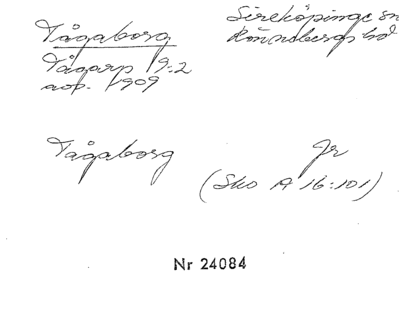 Tågaborg Sireköpinge sn
Tågarp 19:2 Rönnebergs hd
avs. 1909
Tågaborg Jr
(Sko A 16:101)
Nr 24084